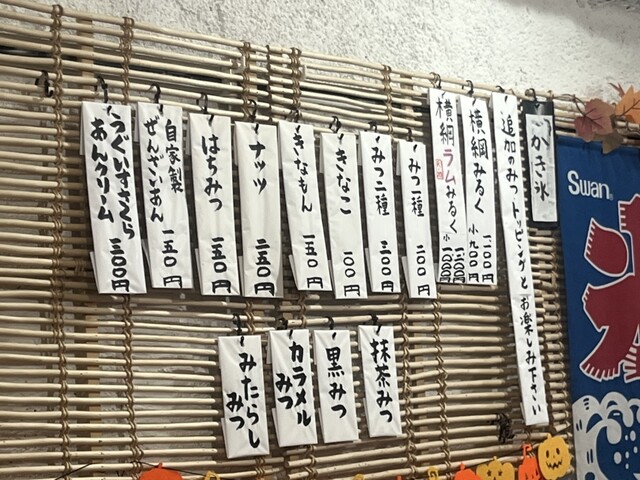 かき氷
追加のみつトッピングとお楽しみ下さい
横綱みるく 一一〇〇円
小 九〇〇円
横綱ラムみるく
小
みつ一種 二〇〇円
みつ二種 三〇〇円
きなこ 一〇〇円
きなもん 一五〇円
ナッツ 二五〇円
はちみつ 一五〇円
自家製
ぜんざいあん 一五〇円
うぐいすさくら
あんクリーム 三〇〇円
抹茶みつ
黒みつ
カラメル
みつ
みたらし
みつ
Swan
氷